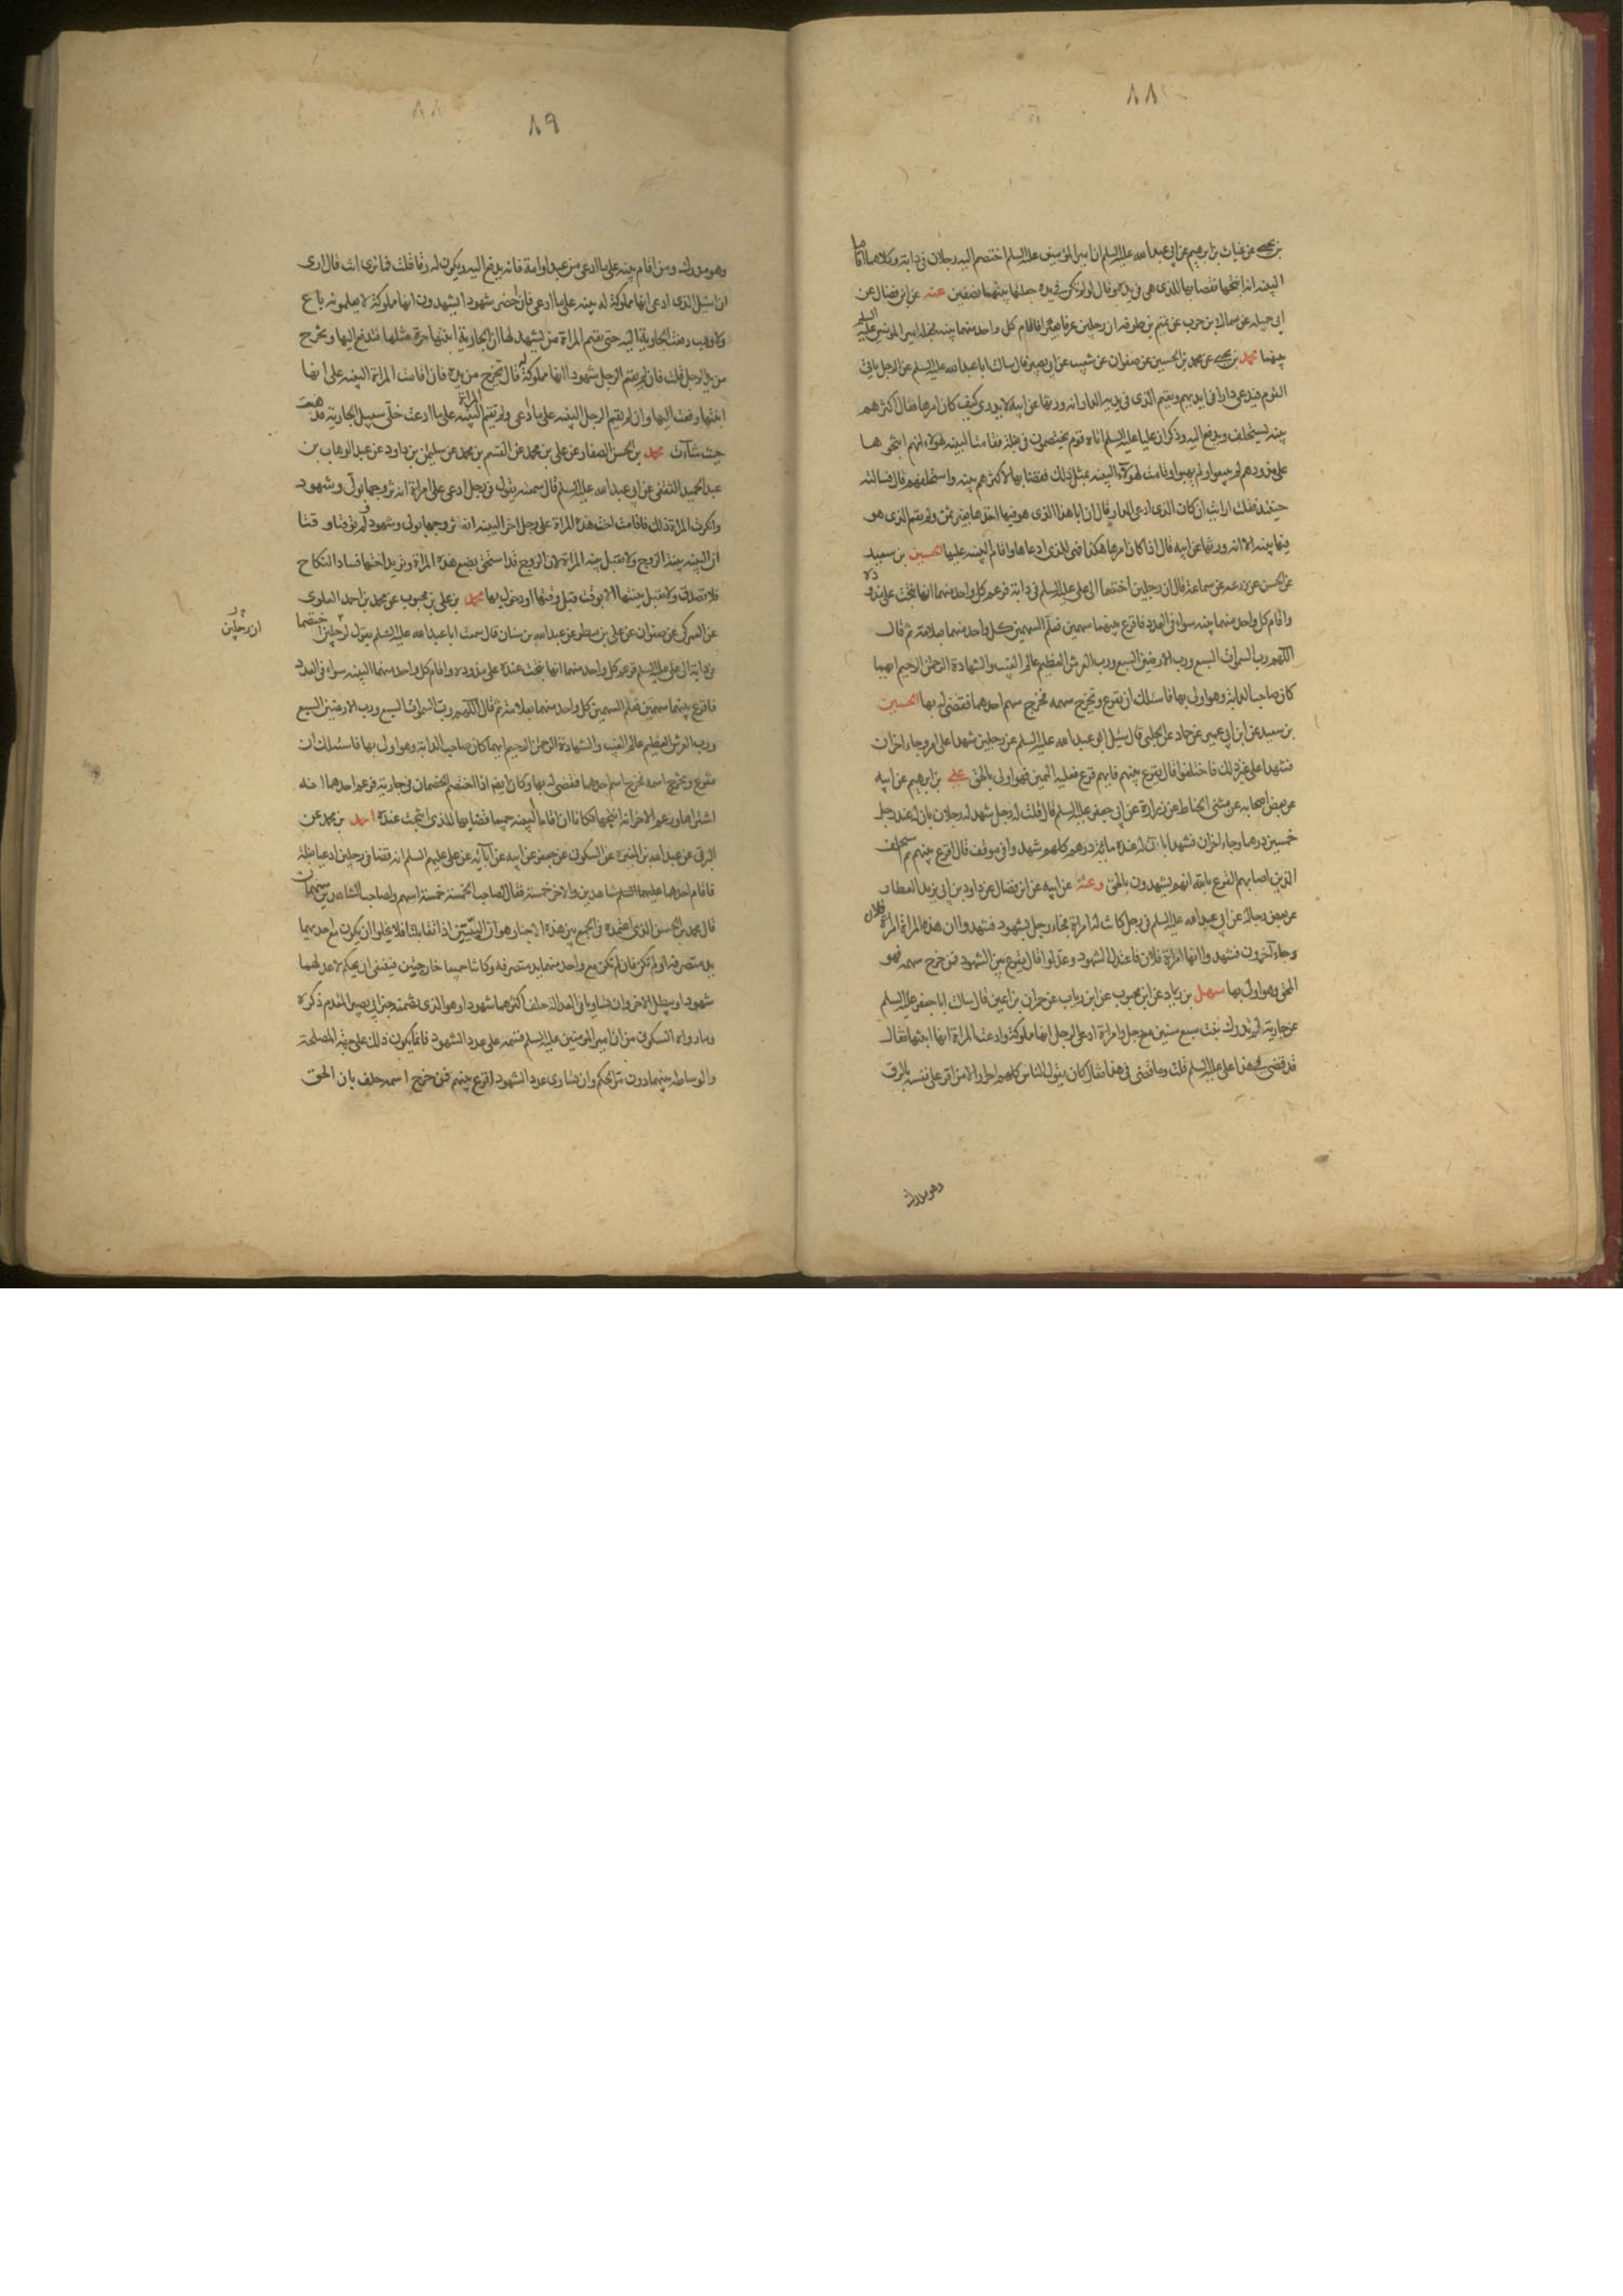 ٨٨
بن يحيى عن غياث بن ابرهيم عن ابي عبد الله عليه السلم ان امير المؤمنين عليه السلم اختصم اليه رجلان في دابة وكلاهما اقاما
البينه انه انتجها فقضا بها للذى هى فى يده وقال لو لم تكن فى يده جعلتها بينهما نصفين عنه عن ابن فضال عن
ابي جميله عن سماك بن حرب عن تميم بن طرفه ان رجلين عرفا بعيرا فاقام كل واحد منهما بينه فجعله امير المؤمنين عليه السلم
بينهما محمد بن يحيى عن محمد بن الحسين عن صفوان عن شعيب عن ابي بصير قال سالت ابا عبد الله عليه السلم عن الرجل ياتى
القوم فيدعى دارا فى ايديهم ويقيم الذى فى يديه الدار انه ورثها عن ابيه لا يدرى كيف كان امرها فقال اكثرهم
بينه يستحلف ويدفع اليه وذكر ان عليا عليه السلم اتاه قوم يختصمون فى بغله فقامت البينه لهؤلاء انهم انتجوها
على مذودهم لم يبيعوا ولم يهبوا وقامت لهؤلاء البينه بمثل ذلك فقضا بها لاكثرهم بينه واستحلفهم قال فسالته
حينئذ فقلت ارايت ان كان الذى ادعى الدار قال ان ابا هذا الذى هو فيها اخذها بغير ثمن ولم يقم الذى هو
فيها بينه الا انه ورثها عن ابيه قال اذا كان امرها هكذا فهى للذى ادعاها واقام البينه عليها الحسين بن سعيد
عن الحسن عن زرعه عن سماعة قال ان رجلين اختصما الى على عليه السلم فى دابة فزعم كل واحد منهما انها نتجت على مذوده
واقام كل واحد منهما بينه سواء فى العدد فاقرع بينهما سهمين فعلم السهمين كل واحد منهما بعلامة ثم قال
اللهم رب السموات السبع ورب الارضين السبع ورب العرش العظيم عالم الغيب والشهادة الرحمن الرحيم ايهما
كان صاحب الدابة وهو اولى بها فاسئلك ان يقرع ويخرج سهمه فخرج سهم احدهما فقضى له بها الحسين
بن سعيد عن ابن ابي عمير عن حماد عن الحلبى قال سئل ابو عبد الله عليه السلم عن رجلين شهدا على امر وجاء اخران
فشهدا على غير ذلك فاختلفوا قال يقرع بينهم فايهم قرع فعليه اليمين فهو اولى بالحق على بن ابرهيم عن ابيه
عن بعض اصحابه عن مثنى الحناط عن زرارة عن ابي جعفر عليه السلم قال قلت له رجل شهد له رجلان بان له عند رجل
خمسين درهما وجاء اخران فشهدا بان له عنده مائة درهم كلهم شهدوا فى موقف قال اقرع بينهم ثم يستحلف
الذين اصابهم القرع بالله انهم يشهدون بالحق وعنه عن ابيه عن ابن فضال عن داود بن ابى يزيد العطار
عن بعض رجاله عن ابى عبد الله عليه السلم فى رجل كانت له امراة فجاء رجل بشهود فشهدوا ان هذه المراة امراة فلان
وجاء آخرون فشهدوا انها امراة فلان فاعتدل الشهود وعدلوا قال يقرع بين الشهود فمن خرج سهمه فهو
المحق وهو اولى بها سهل بن زياد عن ابن محبوب عن ابن رياب عن حمران بن اعين قال سالت ابا جعفر عليه السلم
عن جارية لم تدرك بنت سبع سنين مع رجل وامراة ادعى الرجل انها مملوكة وادعت المراة انها ابنتها فقال
قد قضى فى هذا على عليه السلم قلت وما قضى فى هذا فقال كان يقول الناس كلهم احرار الا من اقر على نفسه بالرق
وهو مدرك
٨٩
وهو مدرك ومن اقام بينه على ما ادعى من عبد او امة فانه يدفع اليه ويكون له رقا قلت فما ترى انت قال ارى
ان اسئل الذى ادعى انها مملوكة له بينه على ما ادعى فان احضر شهودا يشهدون انها مملوكة لا يعلمونه باع
ولا وهب دفعت الجارية اليه حتى تقيم المراة من يشهد لها ان الجارية ابنتها حرة مثلها فتدفع اليها وتخرج
من يد الرجل قلت فان لم يقم الرجل شهودا انها مملوكة له قال تخرج من يده فان اقامت المراة البينه على انها
ابنتها دفعت اليها وان لم يقم الرجل البينه على ما ادعى ولم تقم المراة البينه على ما ادعت خلى سبيل الجارية تذهب
حيث شاءت محمد بن الحسن الصفار عن على بن محمد عن القسم بن محمد عن سليمن بن داود عن عبد الوهاب بن
عبد الحميد الثقفى عن ابى عبد الله عليه السلم قال سمعته يقول فى رجل ادعى على امراة انه تزوجها بولى وشهود
وانكرت المراة ذلك فاقامت اخت هذه المراة على رجل اخر البينه انه تزوجها بولى وشهود ولم توقتا وقتا
ان البينه بينة الزوج ولا تقبل بينه المراة لان الزوج قد استحق بضع هذه المراة وتريد اختها فساد النكاح
فلا تصدق ولا تقبل بينتها الا بوقت قبل وقتها او دخول بها محمد بن على بن محبوب عن محمد بن احمد العلوى
عن العمركى عن صفوان عن على بن مطر عن عبد الله بن سنان قال سمعت ابا عبد الله عليه السلم يقول لرجلين اختصما
ان رجلين
فى دابة الى على عليه السلم فزعم كل واحد منهما انها نتجت عنده على مذوده واقام كل واحد منهما البينه سواء فى العدد
فاقرع بينهما سهمين فعلم السهمين كل واحد منهما بعلامة ثم قال اللهم رب السموات السبع ورب الارضين السبع
ورب العرش العظيم عالم الغيب والشهادة الرحمن الرحيم ايهما كان صاحب الدابة وهو اولى بها فاسئلك ان
تقرع وتخرج اسمه فخرج اسم احدهما فقضى له بها وكان ايضا اذا اختصم الخصمان فى جارية فزعم احدهما انه
اشتراها وزعم الاخر انه انتجها فكانا اذا اقاما البينه جميعا قضا بها للذى انتجت عنده احمد بن محمد عن
البرقى عن عبد الله بن المغيرة عن السكونى عن جعفر عن ابيه عن آبائه عن على عليهم السلم انه قضا فى رجلين ادعيا بغلة
فاقام احدهما عليهما السلم شاهدين والاخر خمسة فقال لصاحب الخمسة خمسة اسهم ولصاحب الشاهدين سهمان
قال محمد بن الحسن الذى اعتمده فى الجمع بين هذه الاخبار هو ان البينتين اذا تقابلتا فلا يخلوا ان يكون مع احديهما
يد متصرفه او لم تكن فان لم تكن مع واحد منهما يد متصرفه وكانتا جميعا خارجتين فينبغى ان يحكم لاعدلهما
شهودا ويبطل الاخر وان تساويا فى العدالة حلف اكثرهما شهودا وهو الذى تضمنه خبر ابى بصير المتقدم ذكره
وما رواه السكونى من ان امير المؤمنين عليه السلم قسمه على عدد الشهود فانما يكون ذلك على جهة المصلحة
والوساطه بينهما دون مر الحكم وان تساوى عدد الشهود اقرع بينهم فمن خرج اسمه حلف بان الحق